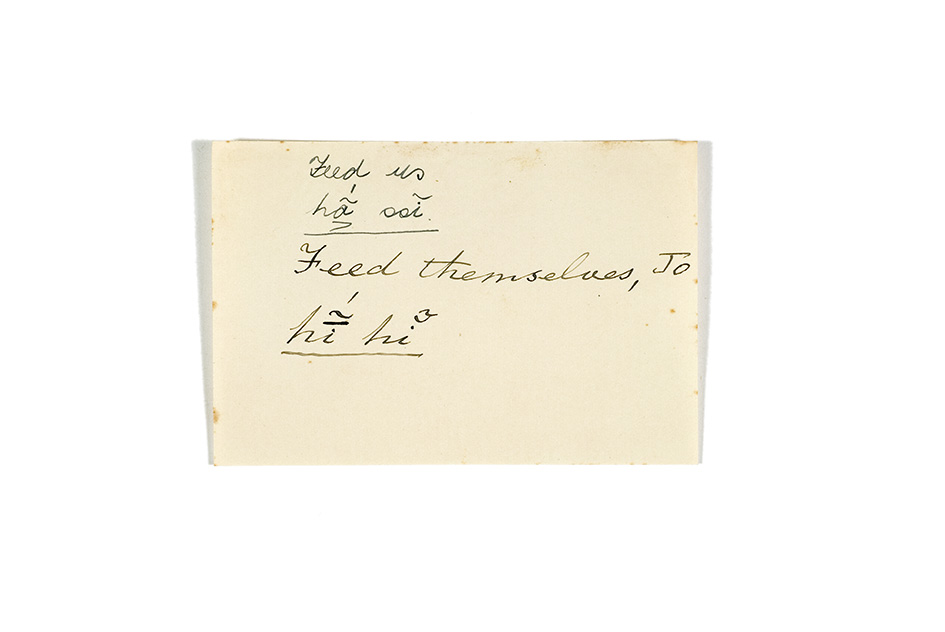 Feed us
hą̃́ ssĩ.
Feed themselves, To
hĩ̱́ hiʾ̃